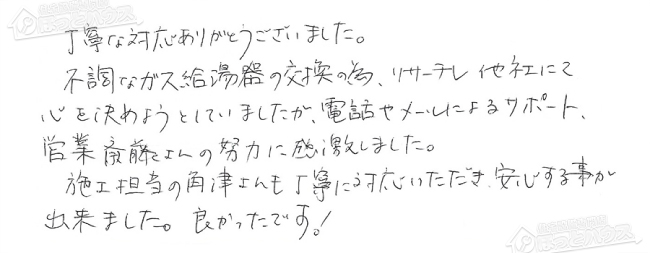 丁寧な対応ありがとうございました。
不調なガス給湯器の交換の為、リサーチし他社にて
心を決めようとしていましたが、電話やメールによるサポート、
営業斎藤さんの努力に感激しました。
施工担当の角津さんも丁寧に対応いただき、安心する事が
出来ました。良かったです!